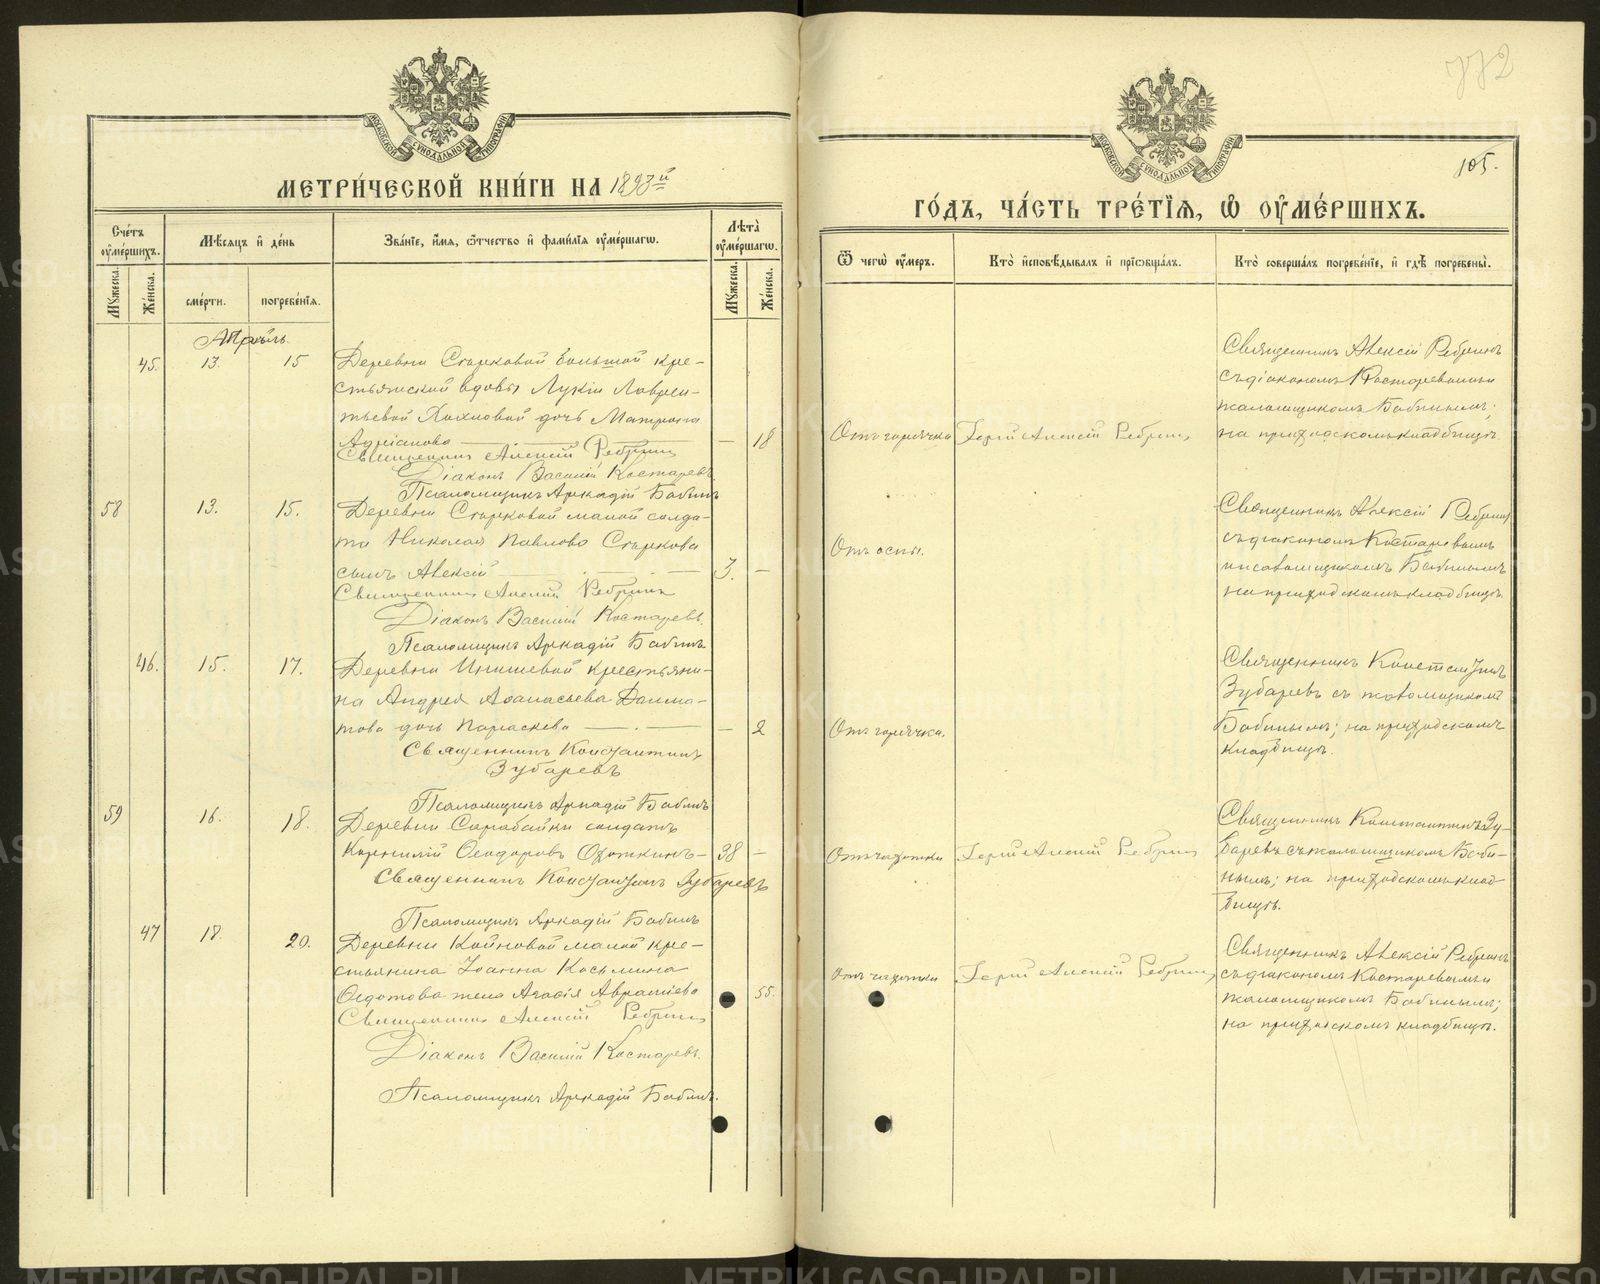 772
МОСКОВСКОЙ СѴНОДАЛЬНОЙ ТИПОГРАФІИ
МОСКОВСКОЙ СѴНОДАЛЬНОЙ ТИПОГРАФІИ
105.
МЕТРИ́ЧЕСКОЙ КНИ́ГИ НА 1893й
ГО́ДЪ, ЧА́СТЬ ТРЕ́ТІЯ, Ѡ ОУ҆МЕ́РШИХЪ.
Сче́тъ оу҆ме́ршихъ.
Мѣ́сяцъ и҆ де́нь
Зва́ніе, и҆́мя, ѻ҆́тчество и҆ фами́лія оу҆ме́ршагѡ.
Лѣ́та оу҆ме́ршагѡ.
Ѿ чегѡ̀ оу҆́меръ.
Кто̀ и҆сповѣ́дывалъ и҆ пріѡбща́лъ.
Кто̀ соверша́лъ погребе́ніе, и҆ гдѣ̀ погребены̀.
Му́жеска.
Же́нска.
сме́рти.
погребе́нія.
Му́жеска.
Же́нска.
Апрѣль.
45. 13. 15
Деревни Старковой большой кре-
стьянской вдовы Лукіи Лаврен-
тьевой дочь Матрона
Адріанова — 18
Священникъ Алексій Ребринъ
Діаконъ Василій Костаревъ.
Псаломщикъ Аркадій Бабинъ
Отъ горячки
Іерей Алексій Ребринъ
Священникъ Алексій Ребринъ
съ діакономъ Костаревымъ и
псаломщикомъ Бабинымъ;
на приходскомъ кладбищѣ.
58 13. 15.
Деревни Старковой малой солда-
та Николая Павлова Старкова
сынъ Алексій 3. —
Священникъ Алексій Ребринъ
Діаконъ Василій Костаревъ.
Псаломщикъ Аркадій Бабинъ
Отъ оспы.
Священникъ Алексій Ребринъ
съ діакономъ Костаревымъ
псаломщикомъ Бабинымъ
на приходскомъ кладбищѣ.
46. 15. 17.
Деревни крестьяни-
на Андрея Аѳанасьева Далма-
това дочь Параскева — 2
Священникъ Константинъ
Зубаревъ
Псаломщикъ Аркадій Бабинъ
Отъ горячки.
Священникъ Константинъ
Зубаревъ съ псаломщикомъ
Бабинымъ; на приходскомъ
кладбищѣ.
59 16. 18.
Деревни Сарабайки солдатъ
Корнилій Ѳеодоровъ Охоткинъ — 38 —
Священникъ Константинъ Зубаревъ
Псаломщикъ Аркадій Бабинъ
Отъ чахотки
Іерей Алексій Ребринъ
Священникъ Константинъ Зу-
баревъ съ псаломщикомъ Баби-
нымъ; на приходскомъ клад-
бищѣ.
47 18. 20.
Деревни Койновой малой кре-
стьянина Іоанна Косьмина
Ѳедотова жена Агафія Авраміева 55.
Священникъ Алексій Ребринъ
Діаконъ Василій Костаревъ.
Псаломщикъ Аркадій Бабинъ.
Отъ чахотки
Іерей Алексій Ребринъ,
Священникъ Алексій Ребринъ
съ діакономъ Костаревымъ и
псаломщикомъ Бабинымъ;
на приходскомъ кладбищѣ.
METRIKI.GASO-URAL.RU